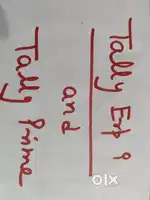 Tally Erp 9
and
Tally Prime
OLX